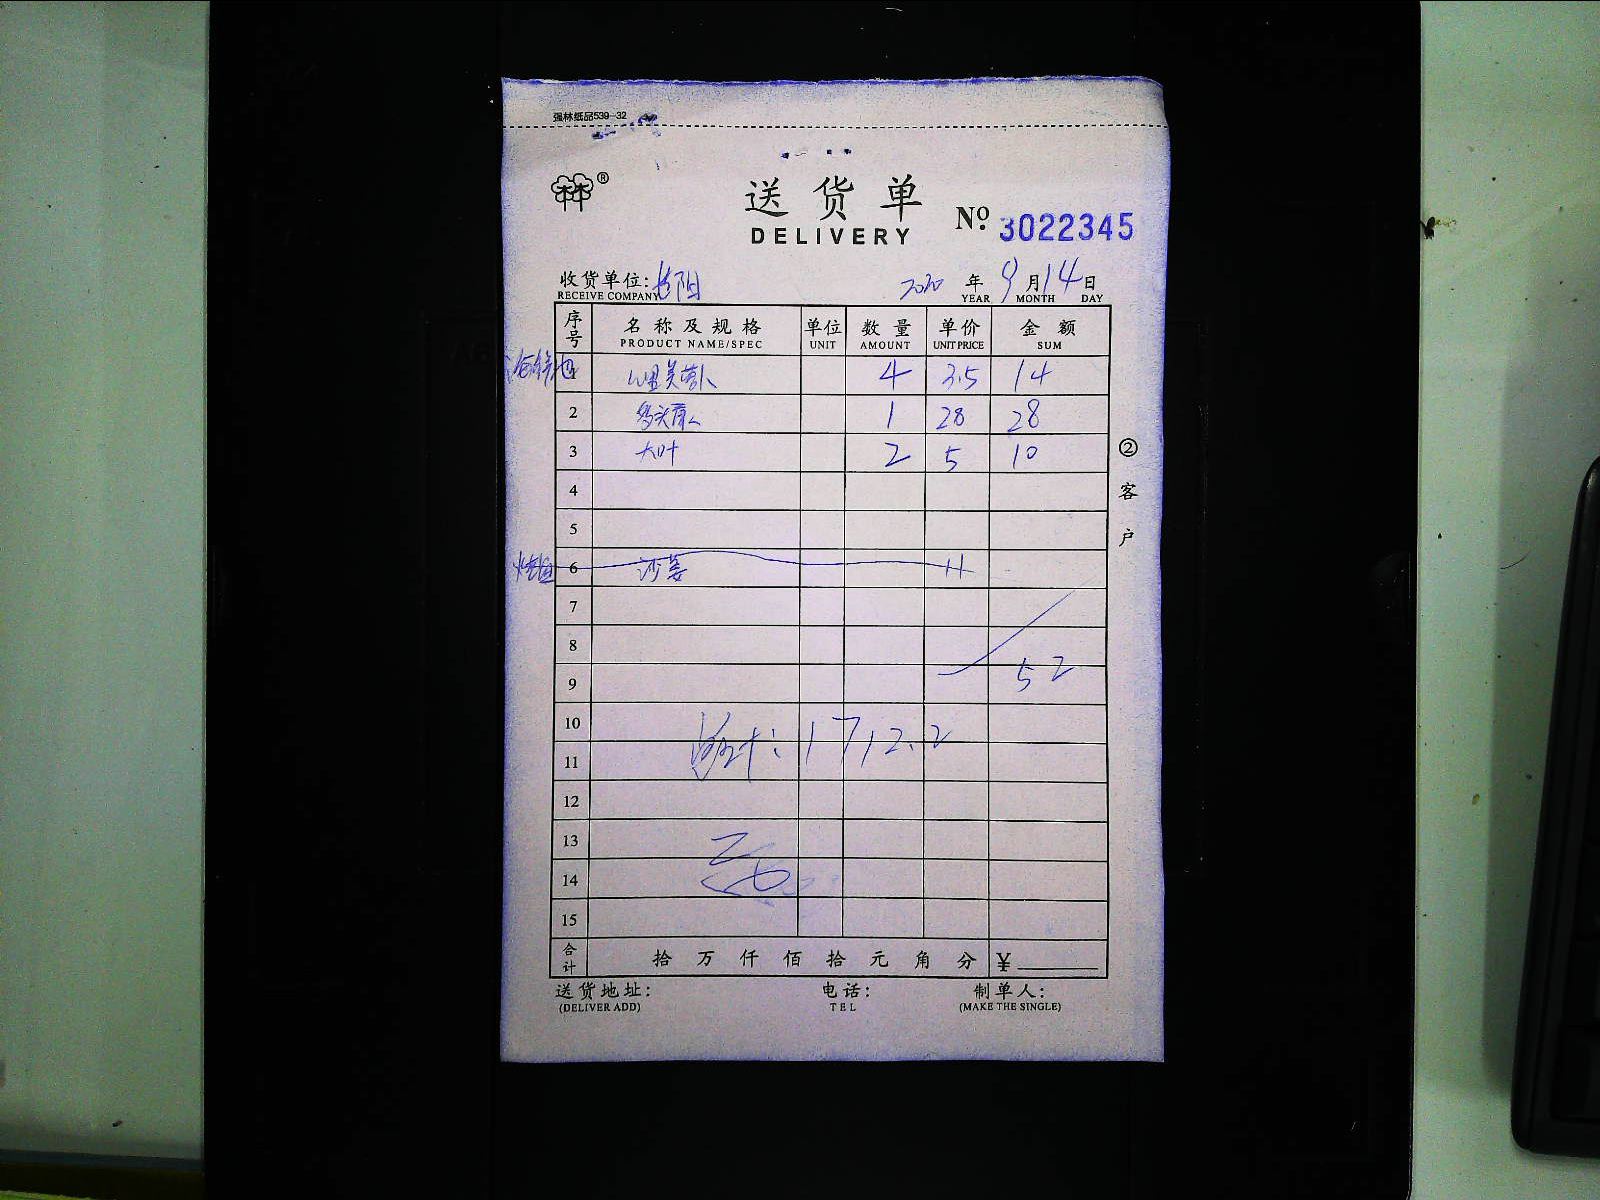 强林纸品539-32
林林®
送货单
DELIVERY
No. 3022345
收货单位: 2020 年 9 月 14 日
RECEIVE COMPANY YEAR MONTH DAY
序号 名称及规格 单位 数量 单价 金额
PRODUCT NAME/SPEC UNIT AMOUNT UNIT PRICE SUM
1 4 3.5 14
2 1 28 28
3 大叶 2 5 10
4
5
6 沙姜
7
8
9 52
10
11 1712.2
12
13
14
15
合计 拾万仟佰拾元角分 ¥
送货地址: 电话: 制单人:
(DELIVER ADD) TEL (MAKE THE SINGLE)
②客户